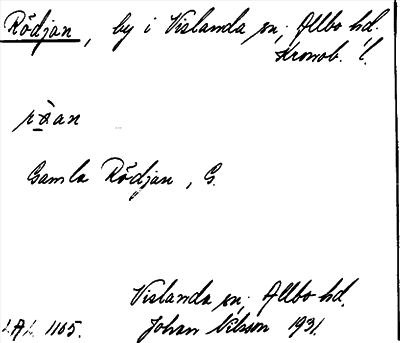 Rödjan, by i Vislanda sn, Allbo hd.
Kronob. l.
Gamla Rödjan, G.
Vislanda sn, Allbo hd.
L.A.L. 1165. Johan Nilsson 1931.